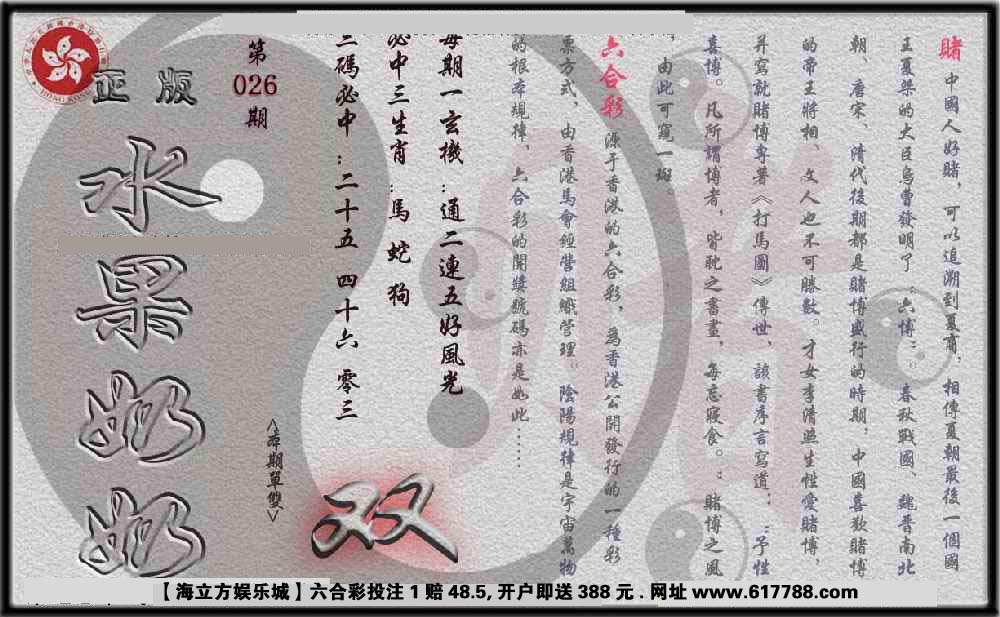 賭 中國人好賭，可以追溯到夏商。相傳夏朝最後一個國
王夏桀的大臣烏曹發明了“六博”。春秋戰國、魏晉南北
朝、唐宋、清代後期都是賭博盛行的時期，中國喜歡賭博
的帝王將相、文人也不可勝數。才女李清照生性愛賭博，
并寫就賭博專著《打馬圖》傳世，該書序言寫道：“予性
喜博。凡所謂博者，皆耽之晝，每忘寢食。”賭博之風
，由此可窺一斑。
六合彩 源于香港的六合彩，為香港公開發行的一種彩
票方式，由香港馬會經營組織管理。陰陽規律是宇宙萬物
的根本規律，六合彩的開獎號碼亦是如此……
每期一玄機：通二連五好風光
必中三生肖：馬 蛇 狗
三碼必中：二十五 四十六 零三
第
026
期
<本期單雙>
双
正版
水果奶奶
【海立方娱乐城】六合彩投注 1 赔 48.5, 开户即送 388 元 . 网址 www.617788.com